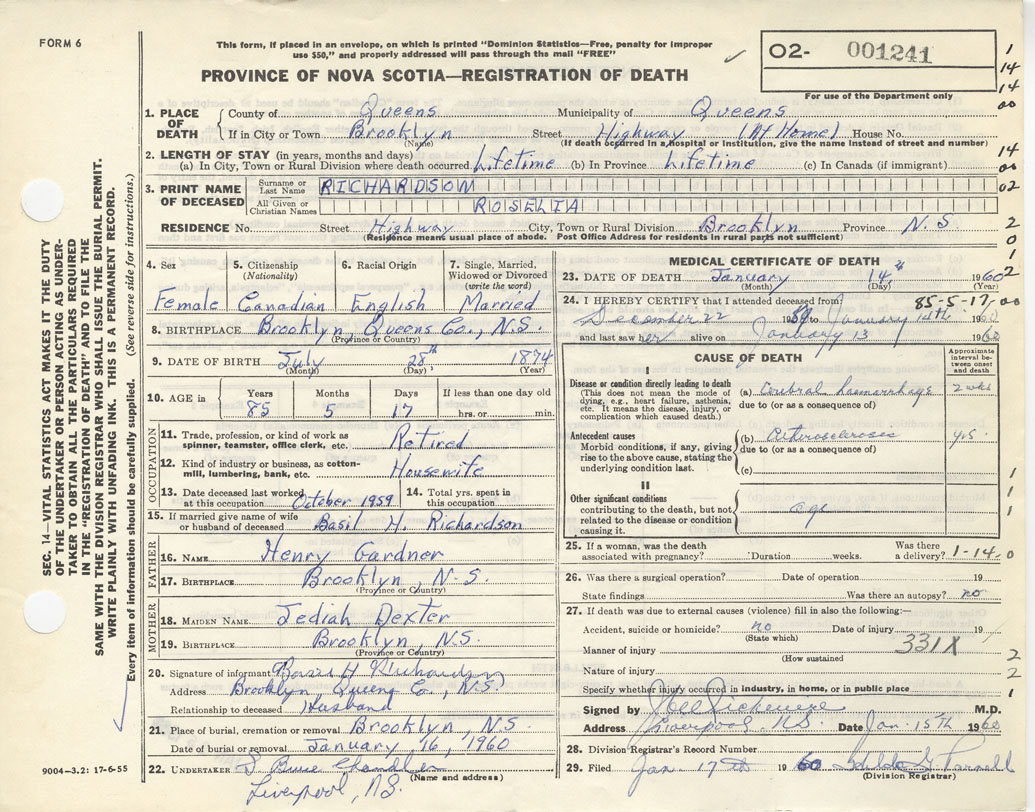 FORM 6
This form, if placed in an envelope, on which is printed "Dominion Statistics—Free, penalty for improper
use $50," and properly addressed will pass through the mail "FREE"
PROVINCE OF NOVA SCOTIA—REGISTRATION OF DEATH
O2- 001241
For use of the Department only
1
14
14
00
14
00
02
2
0
1
2
00
1
1
1
0
2
2
1
SEC. 14—VITAL STATISTICS ACT MAKES IT THE DUTY
OF THE UNDERTAKER OR PERSON ACTING AS UNDER-
TAKER TO OBTAIN ALL THE PARTICULARS REQUIRED
IN THE "REGISTRATION OF DEATH" AND TO FILE THE
SAME WITH THE DIVISION REGISTRAR WHO SHALL ISSUE THE BURIAL PERMIT.
WRITE PLAINLY WITH UNFADING INK. THIS IS A PERMANENT RECORD.
Every item of information should be carefully supplied. (See reverse side for instructions.)
1. PLACE OF DEATH County of Queens Municipality of Queens
If in City or Town Brooklyn Street Highway (At Home) House No.
(Name) (If death occurred in a hospital or institution, give the name instead of street and number)
2. LENGTH OF STAY (in years, months and days)
(a) In City, Town or Rural Division where death occurred Lifetime (b) In Province Lifetime (c) In Canada (if immigrant)
3. PRINT NAME OF DECEASED Surname or Last Name RICHARDSON
All Given or Christian Names ROSELIA
RESIDENCE No. Street Highway City, Town or Rural Division Brooklyn Province N.S.
(Residence means usual place of abode. Post Office Address for residents in rural parts not sufficient)
4. Sex 5. Citizenship (Nationality) 6. Racial Origin 7. Single, Married, Widowed or Divorced (write the word)
Female Canadian English Married
8. BIRTHPLACE Brooklyn, Queens Co., N.S.
(Province or Country)
9. DATE OF BIRTH July 28th 1874
(Month) (Day) (Year)
10. AGE in Years Months Days If less than one day old
85 5 17 hrs. or min.
OCCUPATION
11. Trade, profession, or kind of work as spinner, teamster, office clerk, etc. Retired
12. Kind of industry or business, as cotton-mill, lumbering, bank, etc. Housewife
13. Date deceased last worked at this occupation October 1959 14. Total yrs. spent in this occupation
15. If married give name of wife or husband of deceased Basil H. Richardson
FATHER
16. NAME Henry Gardner
17. BIRTHPLACE Brooklyn, N.S.
(Province or Country)
MOTHER
18. MAIDEN NAME Jediah Dexter
19. BIRTHPLACE Brooklyn, N.S.
(Province or Country)
20. Signature of informant Basil H Richardson
Address Brooklyn, Queens Co., N.S.
Relationship to deceased Husband
21. Place of burial, cremation or removal Brooklyn, N.S.
Date of burial or removal January 16, 1960
22. UNDERTAKER S. Bruce Chandler
(Name and address)
Liverpool, N.S.
9004—3.2: 17-6-55
MEDICAL CERTIFICATE OF DEATH
23. DATE OF DEATH January 14th 1960
(Month) (Day) (Year)
24. I HEREBY CERTIFY that I attended deceased from 85-5-17
December 22 1959 to January 14th 1960
and last saw her alive on January 13 1960
CAUSE OF DEATH Approximate interval between onset and death
I
Disease or condition directly leading to death
(This does not mean the mode of dying, e.g., heart failure, asthenia, etc. It means the disease, injury, or complication which caused death.)
(a) Cerebral haemorrhage 2 wks
due to (or as a consequence of)
Antecedent causes
Morbid conditions, if any, giving rise to the above cause, stating the underlying condition last.
(b) arteriosclerosis yrs.
due to (or as a consequence of)
(c)
II
Other significant conditions
contributing to the death, but not related to the disease or condition causing it.
age
25. If a woman, was the death associated with pregnancy? Duration weeks. Was there a delivery? 1-14-0
26. Was there a surgical operation? Date of operation 19
State findings Was there an autopsy? no
27. If death was due to external causes (violence) fill in also the following:—
Accident, suicide or homicide? no Date of injury 19
(State which)
Manner of injury 331X
(How sustained
Nature of injury
Specify whether injury occurred in industry, in home, or in public place
Signed by M.D.
Address Liverpool N.S. Date Jan. 15th 1960
28. Division Registrar's Record Number
29. Filed Jan. 17th 1960 Hilda G Parnell
(Division Registrar)